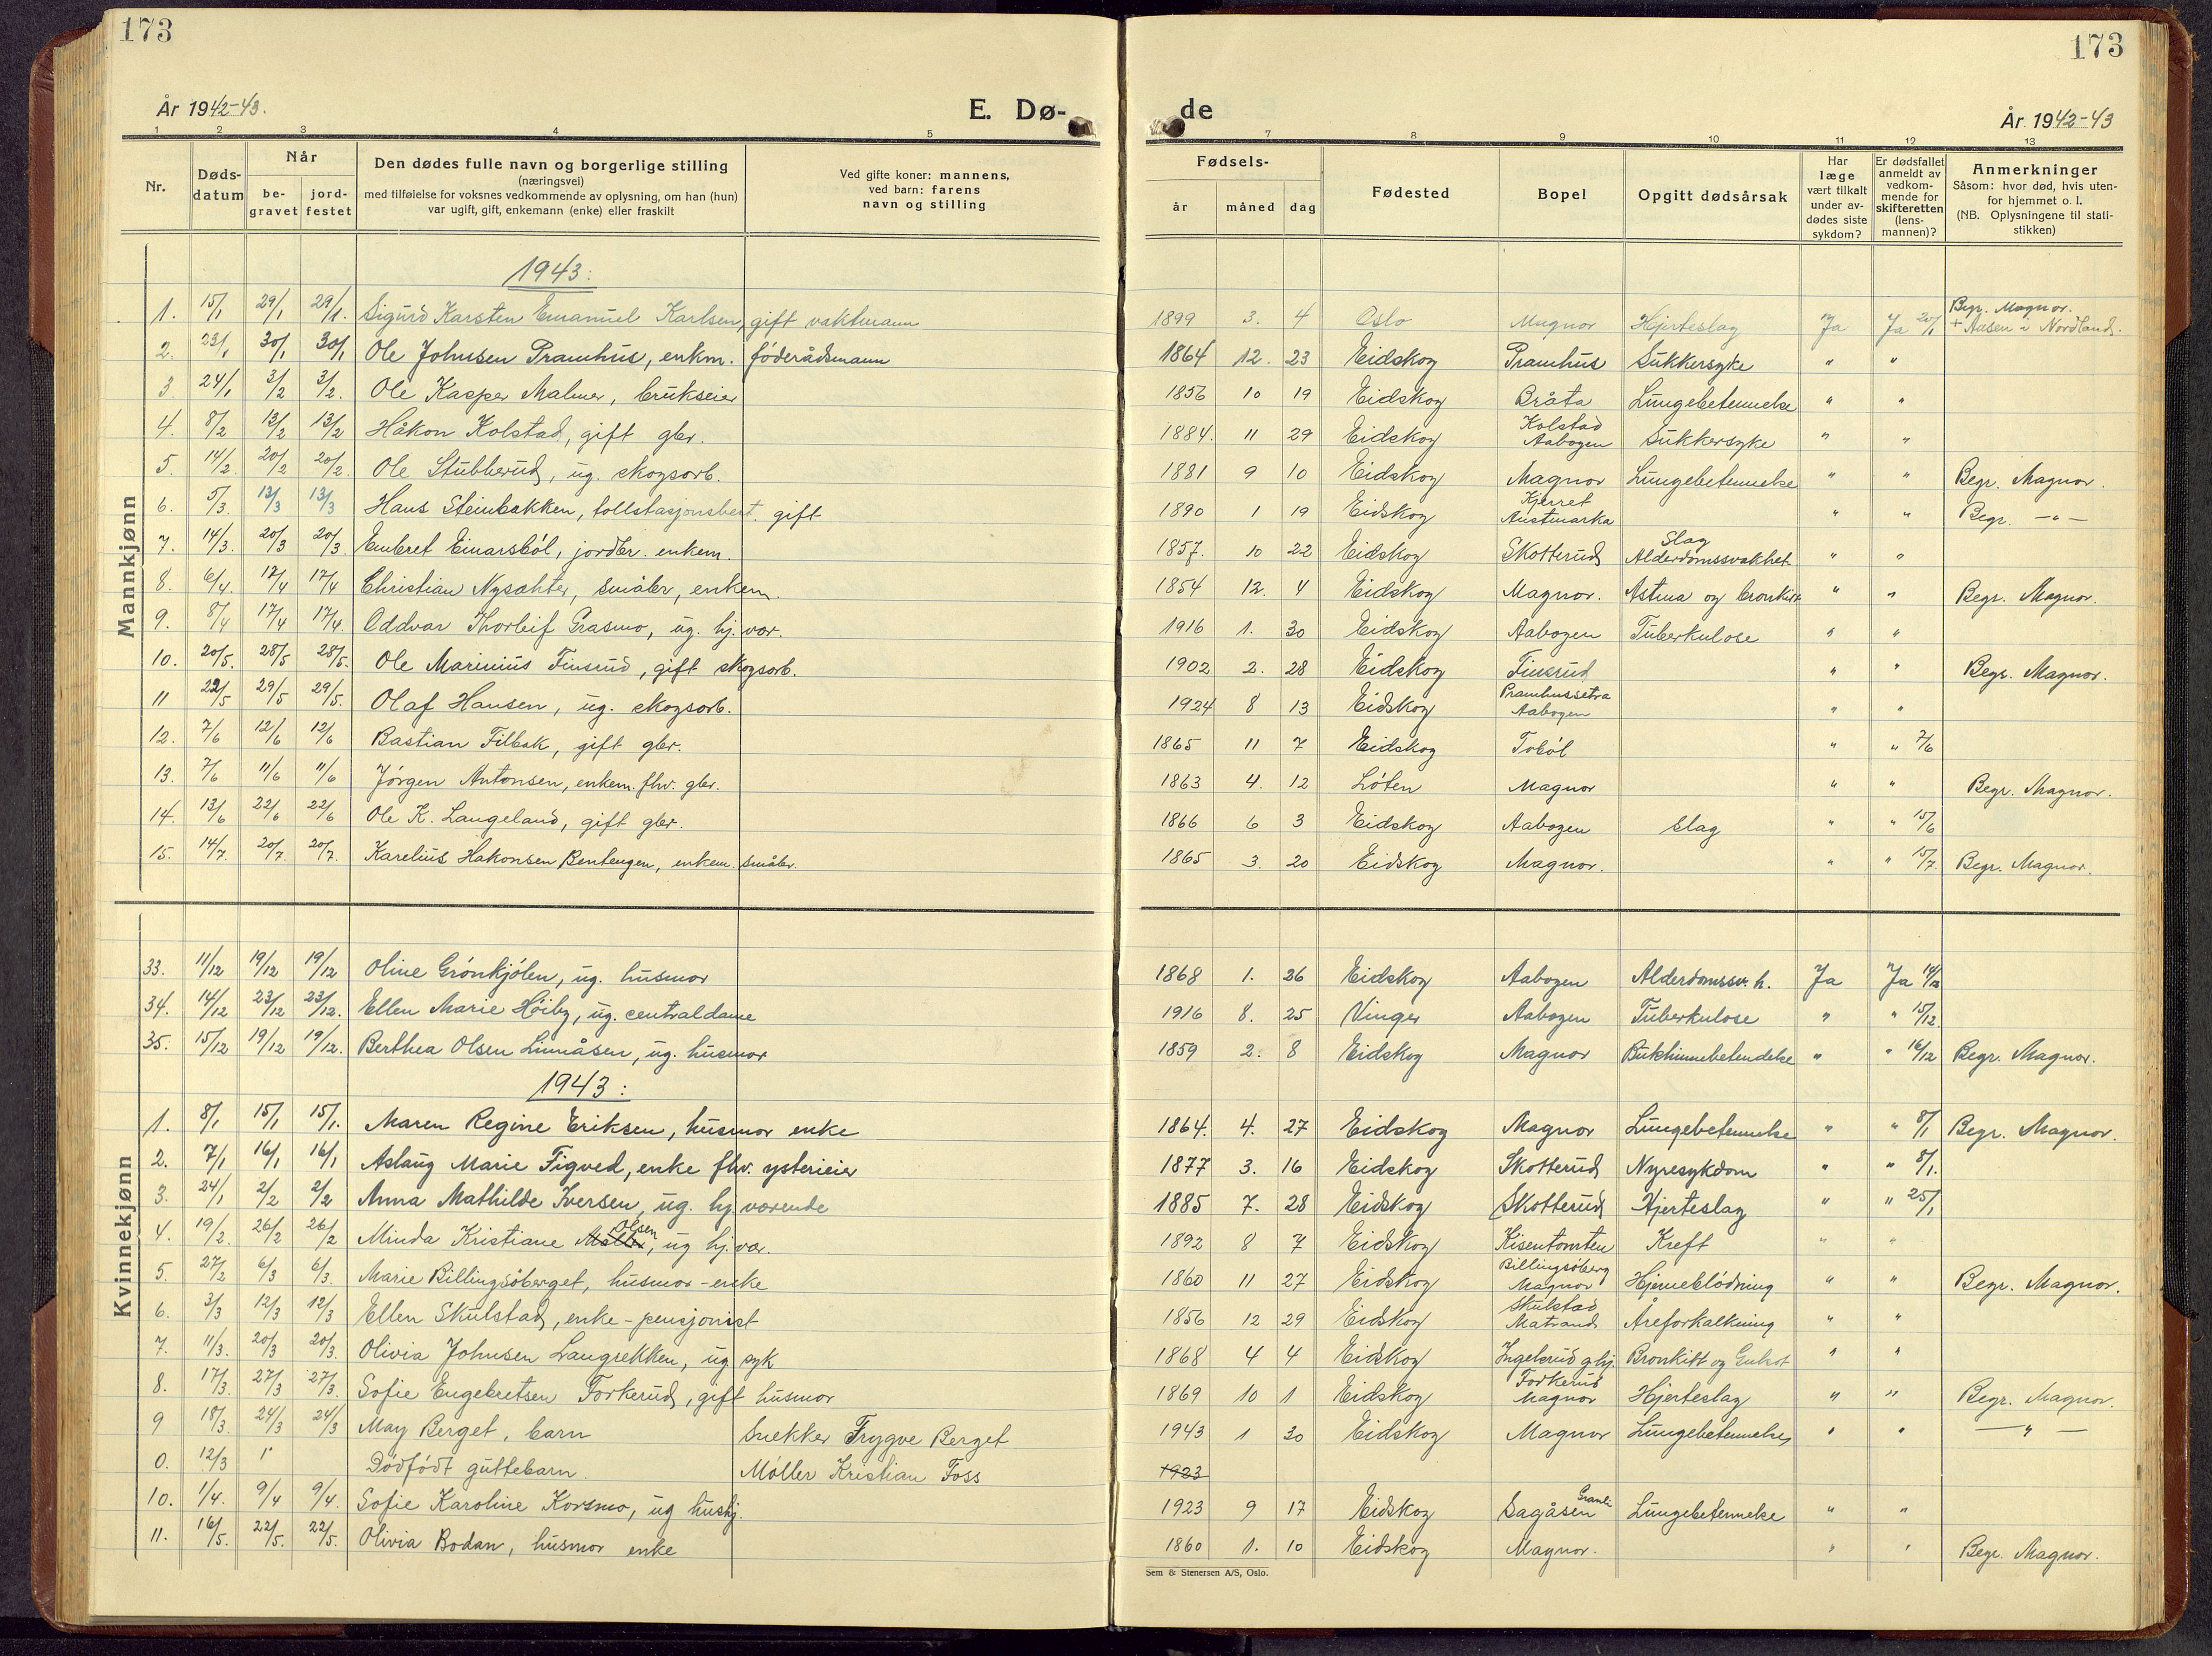 173
173
År 1942-43.
E. Dø-
de
År 1942-43
1 2 3 4 5 7 8 9 10 11 12 13
Nr.
Døds-
datum
Når
be-
gravet
jord-
festet
Den dødes fulle navn og borgerlige stilling
(næringsvei)
med tilføielse for voksnes vedkommende av oplysning, om han (hun)
var ugift, gift, enkemann (enke) eller fraskilt
Ved gifte koner: mannens,
ved barn: farens
navn og stilling
Fødsels-
år
måned
dag
Fødested
Bopel
Opgitt dødsårsak
Har
læge
vært tilkalt
under av-
dødes siste
sykdom?
Er dødsfallet
anmeldt av
vedkom-
mende for
skifteretten
(lens-
mannen)?
Anmerkninger
Såsom: hvor død, hvis uten-
for hjemmet o. l.
(NB. Oplysningene til stati-
stikken)
Mannkjønn
1943:
1. 15/1 29/1 29/1. Sigurd Karsten Emanuel Karlsen, gift vaktmann 1899 3. 4 Oslo Magnor Hjerteslag Ja Ja 20/1 Begr. Magnor. + Aasen i Nordland.
2. 23/1 30/1 30/1 Ole Johnsen Pramhus, enkm. føderådsmann 1864 12. 23 Eidskog Pramhus Sukkersyke " "
3 24/1 3/2 3/2. Ole Kasper Malmer, brukseier 1856 10 19 Eidskog Bråta Lungebetennelse " "
4. 8/2 13/2 13/2 Håkon Kolstad, gift gbr. 1884. 11 29 Eidskog Kolstad Aabogen Sukkersyke " "
5. 14/2 20/2 20/2. Ole Stubberud, ug. skogsarb. 1881 9 10 Eidskog Magnor Lungebetennelse " " Begr. Magnor.
6. 5/3. 13/3 13/3 Hans Steinbakken, tollstasjonsbest. gift 1890 1 19 Eidskog Kjerret Austmarka " " Begr. -"-
7. 14/3. 20/3 20/3. Embret Einarsbøl, jordbr. enkem. 1857. 10 22 Eidskog Skotterud Slag Alderdomssvakhet " "
8. 6/4. 17/4 17/4 Christian Nysæhter, småbr, enkem. 1854 12. 4 Eidskog Magnor. Astma og bronkitt " " Begr. Magnor.
9. 8/4 17/4 17/4. Oddvar Thorleif Grasmo, ug. hj.vær. 1916 1. 30 Eidskog Aabogen Tuberkulose " "
10. 20/5. 28/5 28/5. Ole Marinius Finsrud, gift skogsarb. 1902 2. 28 Eidskog Finsrud " " Begr. Magnor.
11 22/5 29/5 29/5. Olaf Hansen, ug. skogsarb. 1924 8 13 Eidskog Pramhussetra Aabogen " "
12. 7/6 12/6 12/6 Bastian Tilbak, gift gbr. 1865 11 7 Eidskog Tobøl " " 7/6
13. 7/6 11/6 11/6 Jørgen Antonsen, enkem. fhv. gbr. 1863 4. 12 Løten Magnor " " Begr. Magnor.
14. 13/6 22/6 22/6 Ole K. Langeland, gift gbr. 1866 6 3 Eidskog Aabogen Slag " " 15/6
15. 14/7 20/7. 20/7. Karelius Hakonsen Bentengen, enkem. småbr. 1865 3. 20 Eidskog Magnor. " " 15/7. Begr. Magnor.
Kvinnekjønn
33. 11/12 19/12 19/12 Oline Grønkjølen, ug. husmor 1868 1. 26 Eidskog Aabogen Alderdomssv.h. Ja Ja 14/12
34. 14/12 23/12 23/12. Ellen Marie Høiby, ug. centraldame 1916 8. 25 Vinger Aabogen Tuberkulose " " 15/12.
35. 15/12 19/12 19/12. Berthea Olsen Linnåsen, ug. husmor 1859 2. 8 Eidskog Magnor Bukhinnebetendelse " " 16/12 Begr. Magnor.
1943:
1. 8/1 15/1 15/1. Maren Regine Eriksen, husmor enke 1864. 4. 27 Eidskog Magnor Lungebetennelse " " 8/1 Begr. Magnor.
2. 7/1 16/1 16/1 Aslaug Marie Figved, enke fhv. ysterieier 1877 3. 16 Eidskog Skotterud Nyresykdom " " 8/1.
3. 24/1 2/2 2/2 Anna Mathilde Iversen, ug. hj.værende 1885 7. 28 Eidskog Skotterud Hjerteslag " " 25/1
4. 19/2. 26/2 26/2 Minda Kristiane Olsen, ug hj.vær. 1892 8 7 Eidskog Kisentomten Kreft " "
5. 27/2 6/3 6/3. Marie Billingsøberget, husmor-enke 1860 11 27 Eidskog Billingsøberg Magnor Hjerneblødning " " Begr. Magnor.
6. 3/3 12/3 12/3 Ellen Skulstad, enke-pensjonist 1856 12 29 Eidskog Skulstad Matrand Åreforkalkning " "
7. 11/3. 20/3 20/3. Olivia Johnsen Langrekken, ug syk 1868 4 4 Eidskog Ingelsrud g.hj. Bronkitt og Gulsot " "
8. 17/3. 27/3 27/3. Sofie Engebretsen Torkerud, gift husmor 1869 10 1 Eidskog Torkerud Magnor Hjerteslag " " Begr. Magnor.
9 18/3. 24/3 24/3 May Berget, barn Snekker Trygve Berget 1943 1 30 Eidskog Magnor Lungebetennelse " " -"-
0. 12/3 Dødfødt guttebarn. Møller Kristian Foss 1923
10. 1/4. 9/4 9/4. Sofie Karoline Korsmo, ug hushj. 1923 9 17 Eidskog Sagåsen Granli Lungebetennelse " "
11. 16/5. 22/5. 22/5. Olivia Bodan, husmor enke 1860 1. 10 Eidskog Magnor. " " Begr. Magnor.
Sem & Stenersen A/S, Oslo.